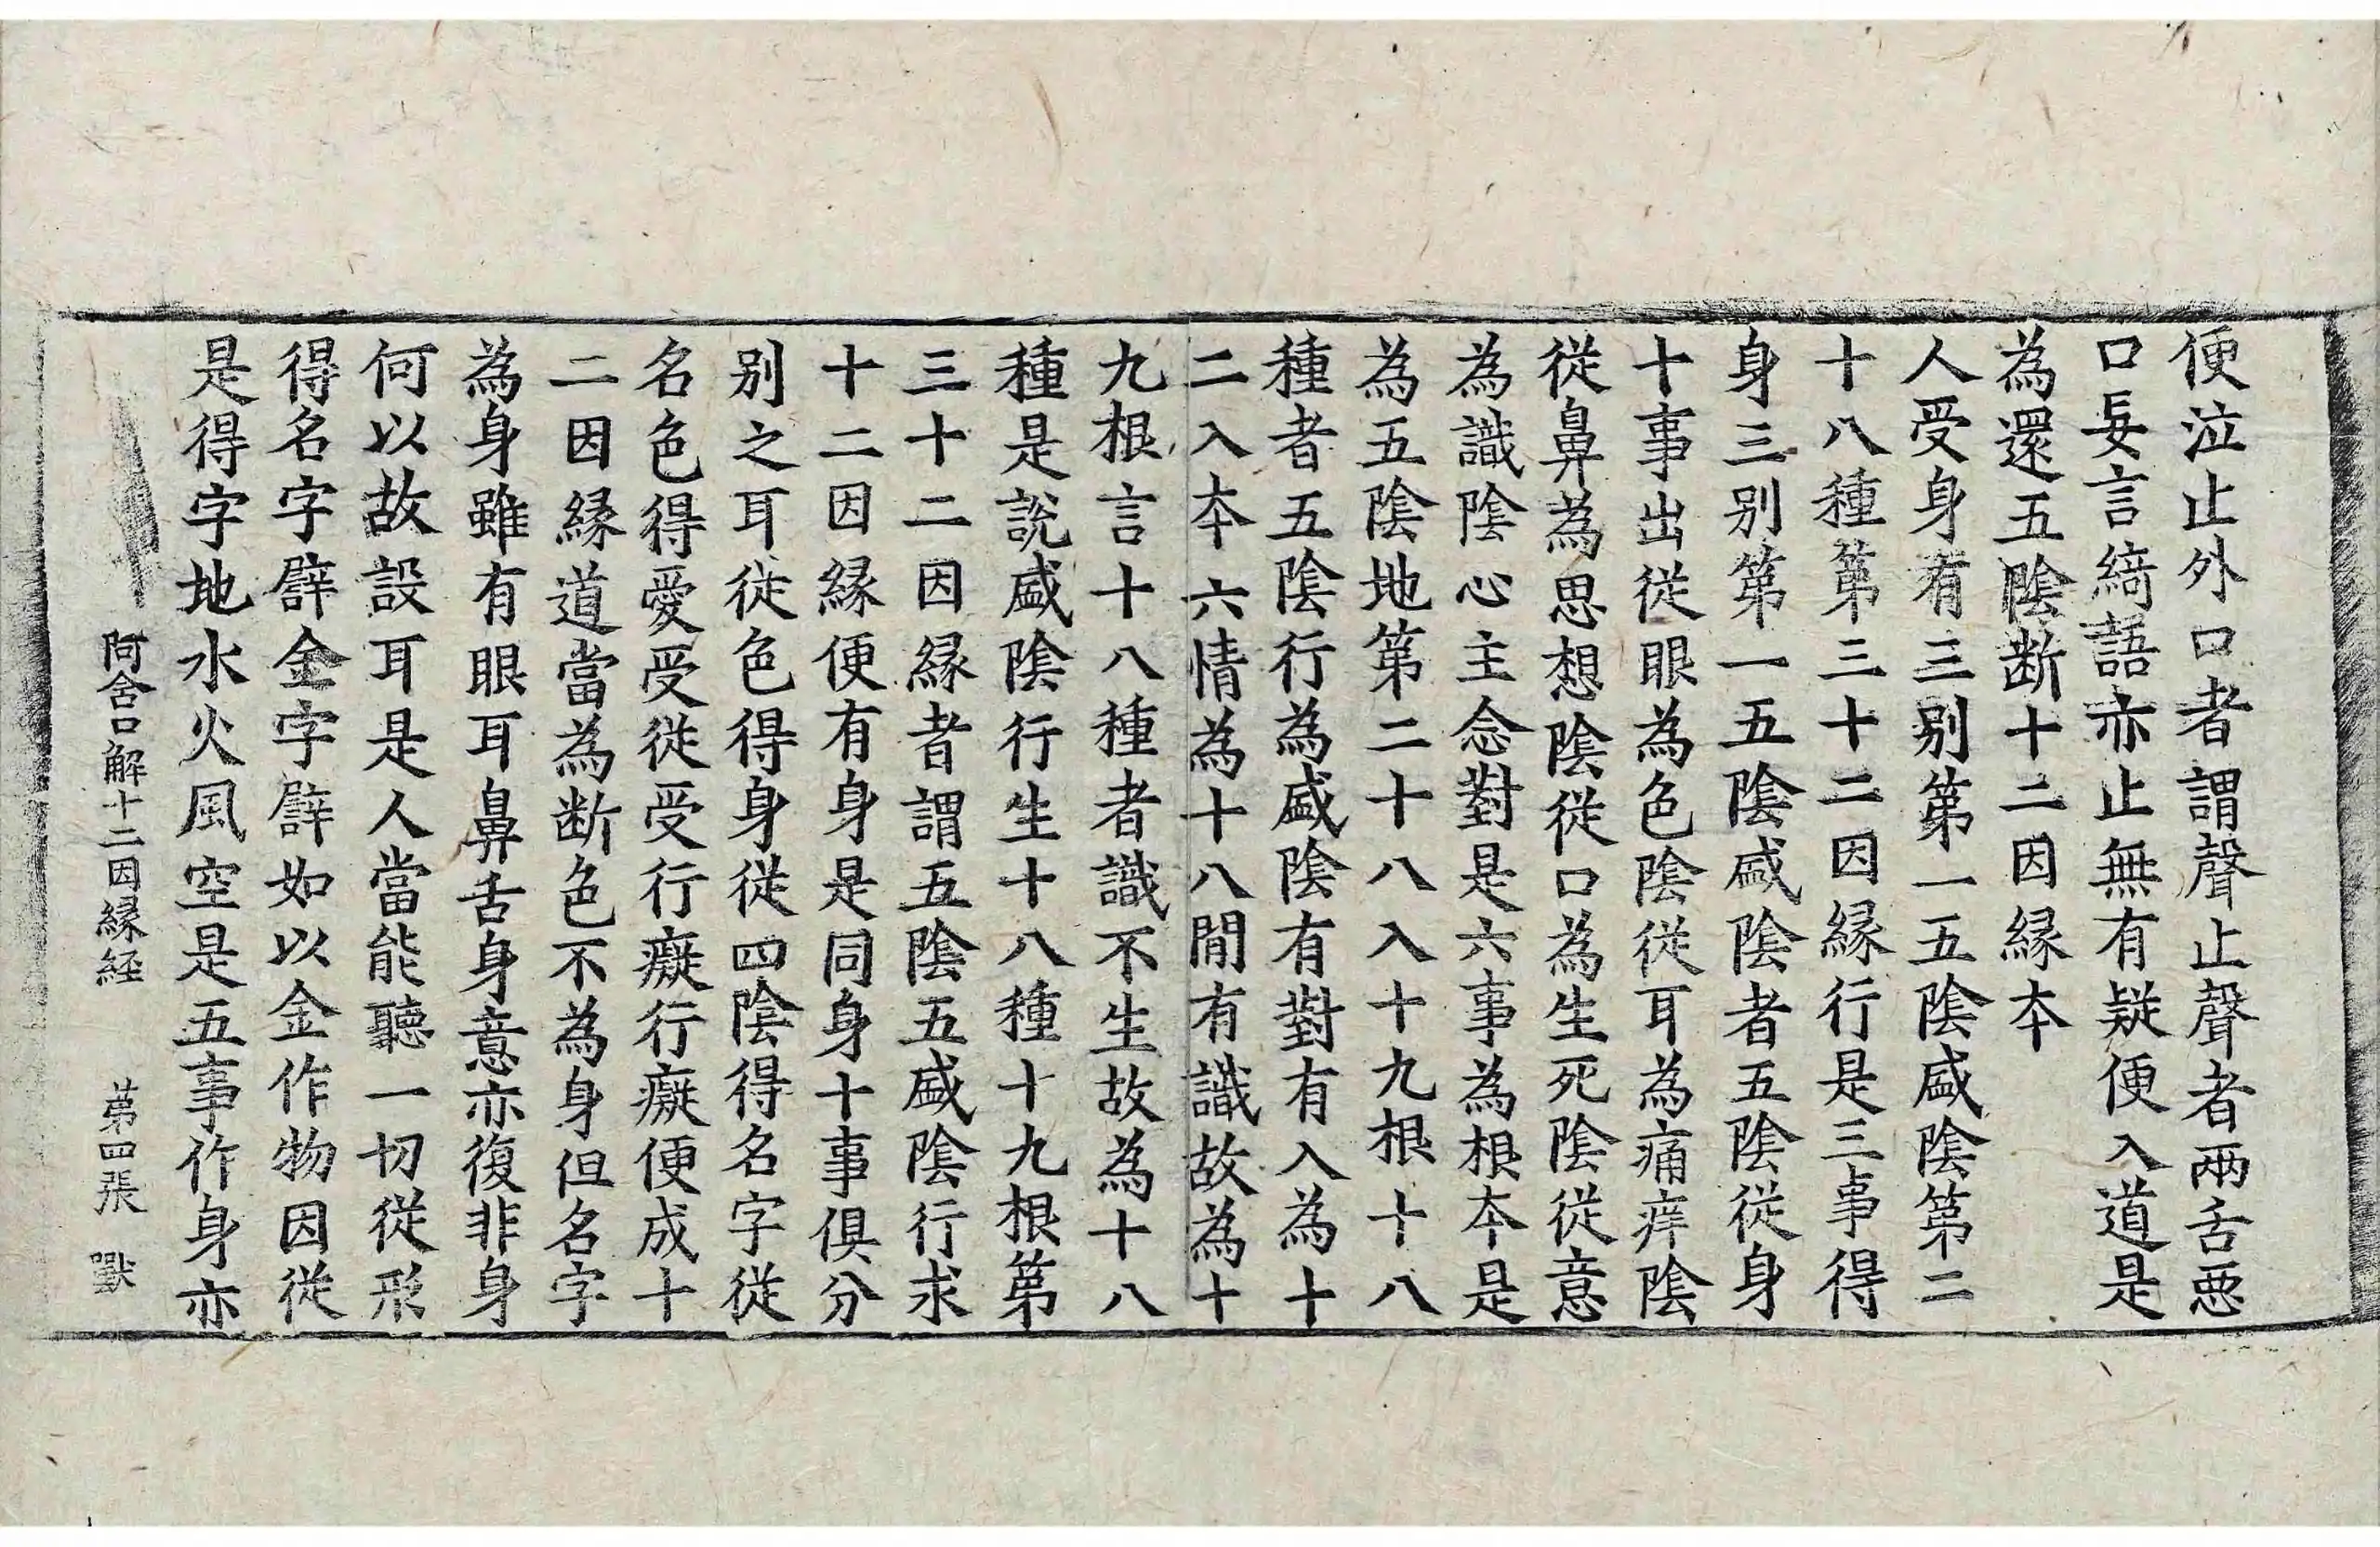 便泣止外口者謂聲止聲者兩舌惡
口妄言綺語亦止無有疑便入道是
為還五陰斷十二因縁本
人受身有三别第一五陰盛陰第二
十八種第三十二因縁行是三事得
身三别第一五陰盛陰者五陰從身
十事出從眼為色陰從耳為痛痒陰
從鼻為思想陰從口為生死陰從意
為識陰心主念對是六事為根本是
為五陰地第二十八入十九根十八
種者五陰行為盛陰有對有入為十
二入本六情為十八閒有識故為十
九根言十八種者識不生故為十八
種是說盛陰行生十八種十九根第
三十二因縁者謂五陰五盛陰行求
十二因縁便有身是同身十事俱分
别之耳從色得身從四陰得名字從
名色得愛受從受行癡行癡便成十
二因縁道當為断色不為身但名字
為身雖有眼耳鼻舌身意亦復非身
何以故設耳是人當能聽一切從形
得名字譬金字譬如以金作物因從
是得字地水火風空是五事作身亦
阿含口解十二因縁経　第四張　獸